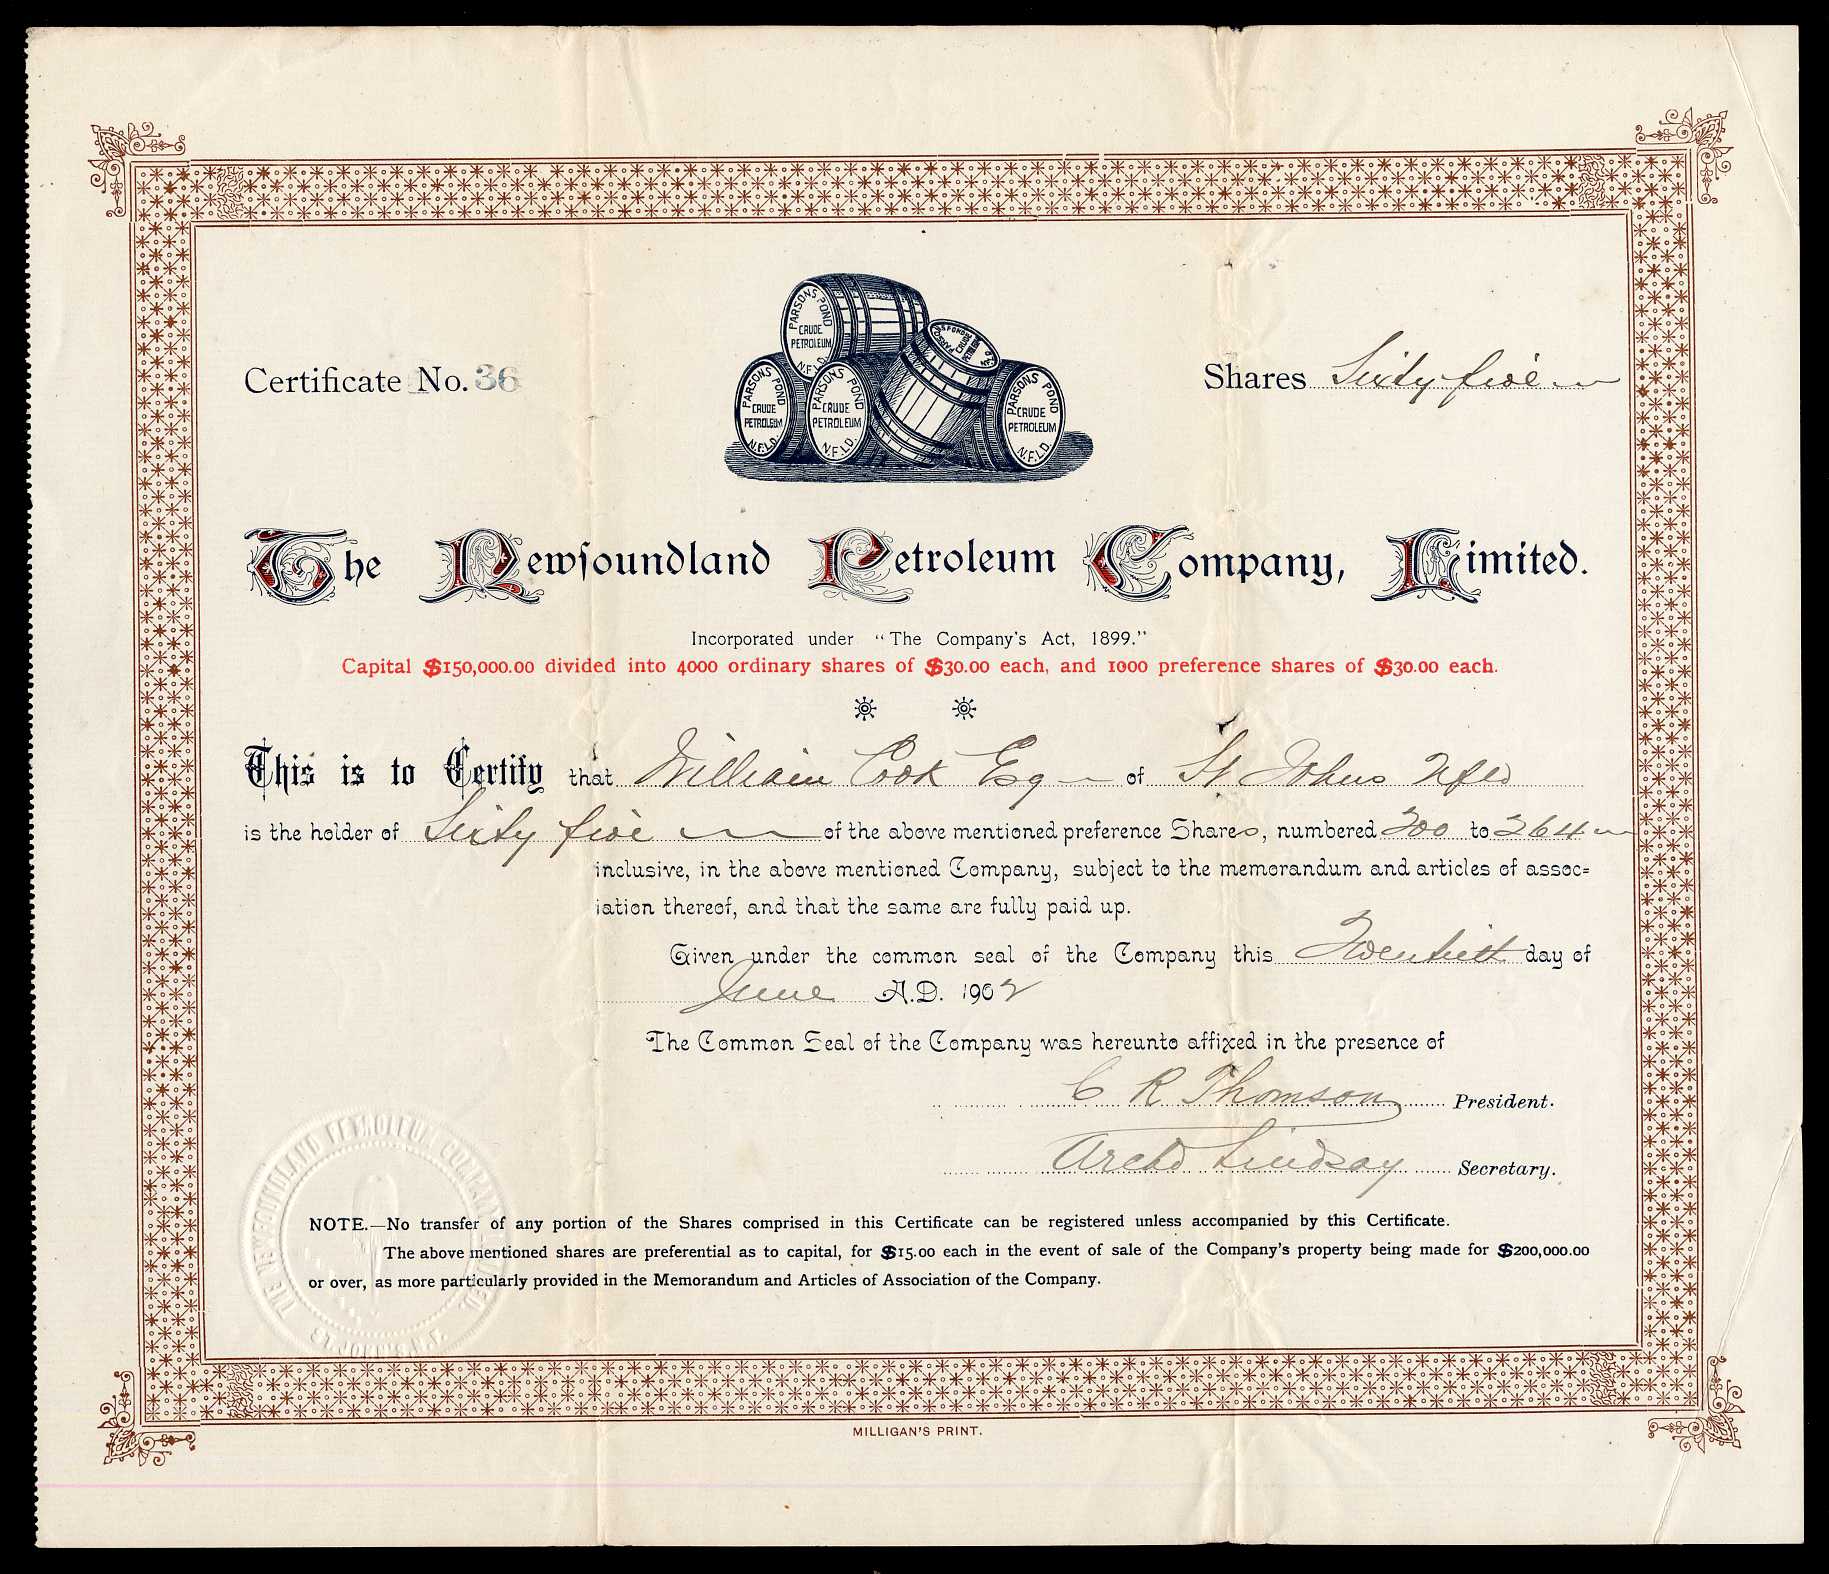 PARSONS POND CRUDE PETROLEUM N.F.L.D.
PARSONS POND CRUDE PETROLEUM N.F.L.D.
PARSONS POND CRUDE PETROLEUM N.F.L.D.
PARSONS POND CRUDE PETROLEUM N.F.L.D.
PARSONS POND CRUDE PETROLEUM N.F.L.D.
Certificate No. 36
Shares Sixty five
The Newfoundland Petroleum Company, Limited.
Incorporated under "The Company's Act, 1899."
Capital $150,000.00 divided into 4000 ordinary shares of $30.00 each, and 1000 preference shares of $30.00 each.
This is to Certify that William Cook Esq of St Johns Nfld
is the holder of Sixty five of the above mentioned preference Shares, numbered 200 to 264
inclusive, in the above mentioned Company, subject to the memorandum and articles of assoc=
iation thereof, and that the same are fully paid up.
Given under the common seal of the Company this Twentieth day of
June A.D. 1902
The Common Seal of the Company was hereunto affixed in the presence of
C R Thomson President.
Archd Lindsay Secretary.
THE NEWFOUNDLAND PETROLEUM COMPANY
NOTE.—No transfer of any portion of the Shares comprised in this Certificate can be registered unless accompanied by this Certificate.
The above mentioned shares are preferential as to capital, for $15.00 each in the event of sale of the Company's property being made for $200,000.00
or over, as more particularly provided in the Memorandum and Articles of Association of the Company.
MILLIGAN'S PRINT.